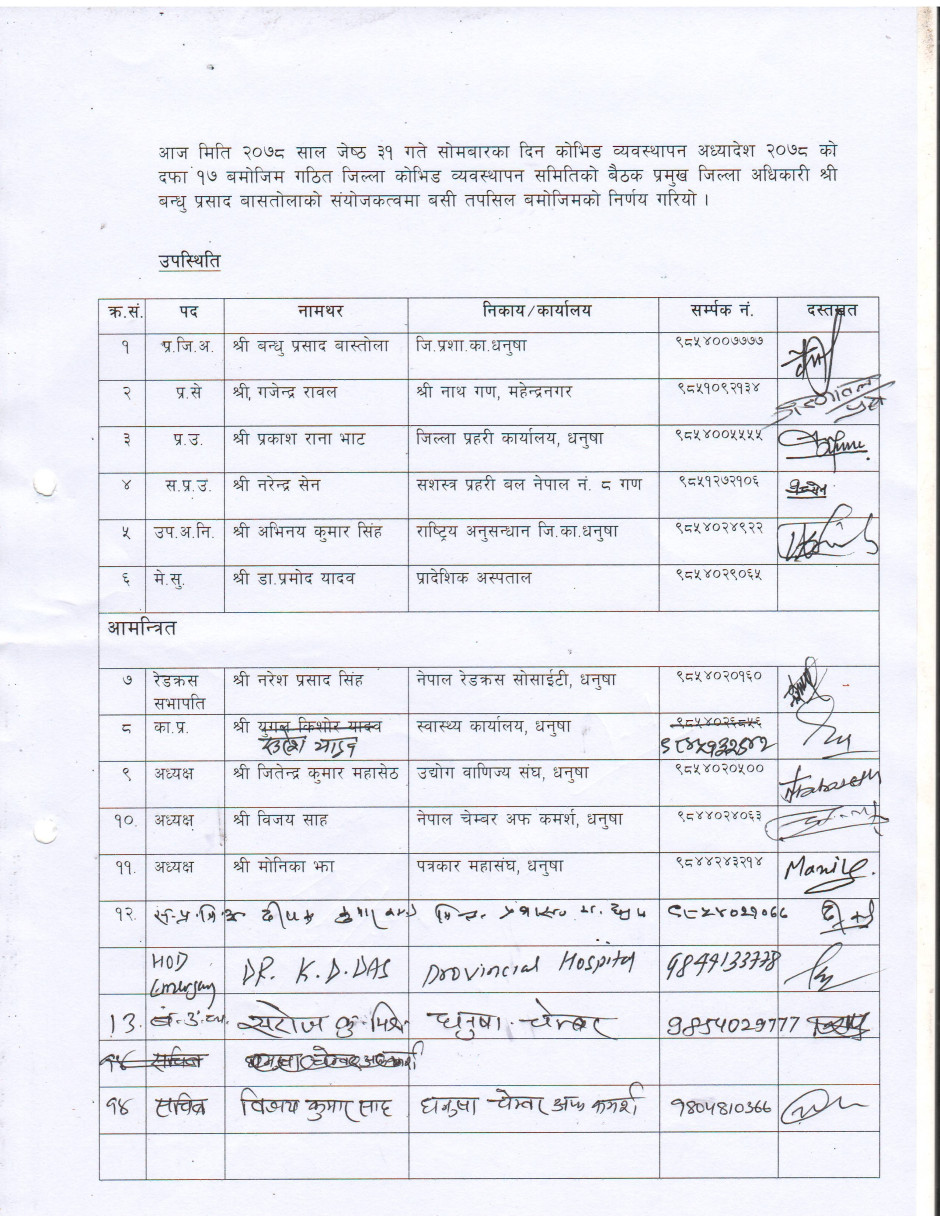 आज मिति २०७८ साल जेष्ठ ३१ गते सोमबारका दिन कोभिड व्यवस्थापन अध्यादेश २०७८ को
दफा १७ बमोजिम गठित जिल्ला कोभिड व्यवस्थापन समितिको बैठक प्रमुख जिल्ला अधिकारी श्री
बन्धु प्रसाद बासतोलाको संयोजकत्वमा बसी तपसिल बमोजिमको निर्णय गरियो ।
उपस्थिति
क्र.सं. पद नामथर निकाय/कार्यालय सर्म्पक नं. दस्तखत
१ प्र.जि.अ. श्री बन्धु प्रसाद बास्तोला जि.प्रशा.का.धनुषा ९८५४००७७७७
२ प्र.से श्री, गजेन्द्र रावल श्री नाथ गण, महेन्द्रनगर ९८५१०९२१३४
३ प्र.उ. श्री प्रकाश राना भाट जिल्ला प्रहरी कार्यालय, धनुषा ९८५४००५५५५
४ स.प्र.उ. श्री नरेन्द्र सेन सशस्त्र प्रहरी बल नेपाल नं. ८ गण ९८५१२७२१०६
५ उप.अ.नि. श्री अभिनय कुमार सिंह राष्ट्रिय अनुसन्धान जि.का.धनुषा ९८५४०२४९२२
६ मे.सु. श्री डा.प्रमोद यादव प्रादेशिक अस्पताल ९८५४०२९०६५
आमन्त्रित
७ रेडक्रस श्री नरेश प्रसाद सिंह नेपाल रेडक्रस सोसाईटी, धनुषा ९८५४०२०१६०
सभापति
८ का.प्र. श्री युगल किशोर यादव स्वास्थ्य कार्यालय, धनुषा ९८५४०२६८५६
यादव
९ अध्यक्ष श्री जितेन्द्र कुमार महासेठ उद्योग वाणिज्य संघ, धनुषा ९८५४०२०५००
१०. अध्यक्ष श्री विजय साह नेपाल चेम्बर अफ कमर्श, धनुषा ९८४४०२४०६३
११. अध्यक्ष श्री मोनिका झा पत्रकार महासंघ, धनुषा ९८४४२४३२१४
१२. ९८५४०२१०६६
HOD DR. K.D.DAS Provincial Hospital 9844133778
Emergency
13. सरोज कु. मिश्र धनुषा चेम्बर 9854029777
१४ सचिव
१४ सचिव विजय कुमार साह धनुषा चेम्बर अफ कमर्श 9804810366